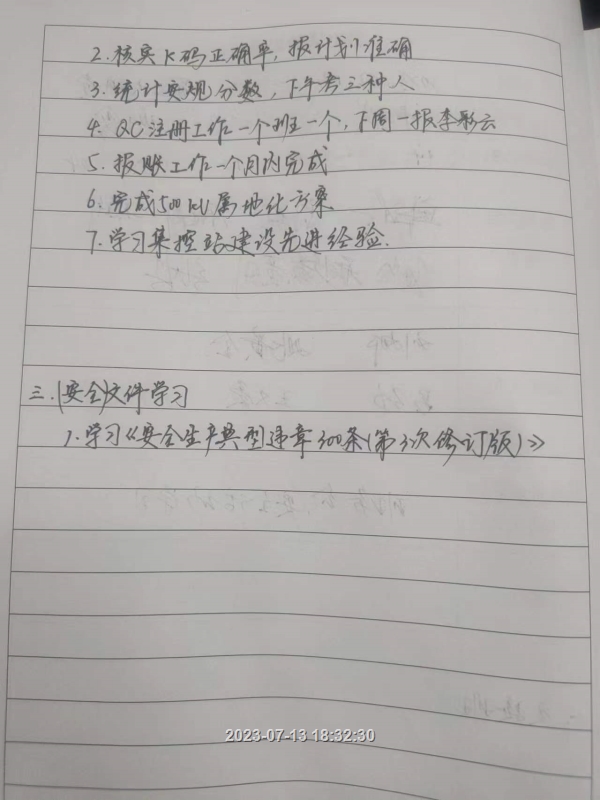 2. 核实K码正确率，报计划准确
3. 统计安规分数，下午考三种人
4. QC注册工作一个班一个，下周一报李彩云
5. 报账工作一个月内完成
6. 完成500kV属地化方案
7. 学习集控站建设先进经验.
三. (安全)文件学习
1. 学习《安全生产典型违章300条(第3次修订版)》
2023-07-13 18:32:30